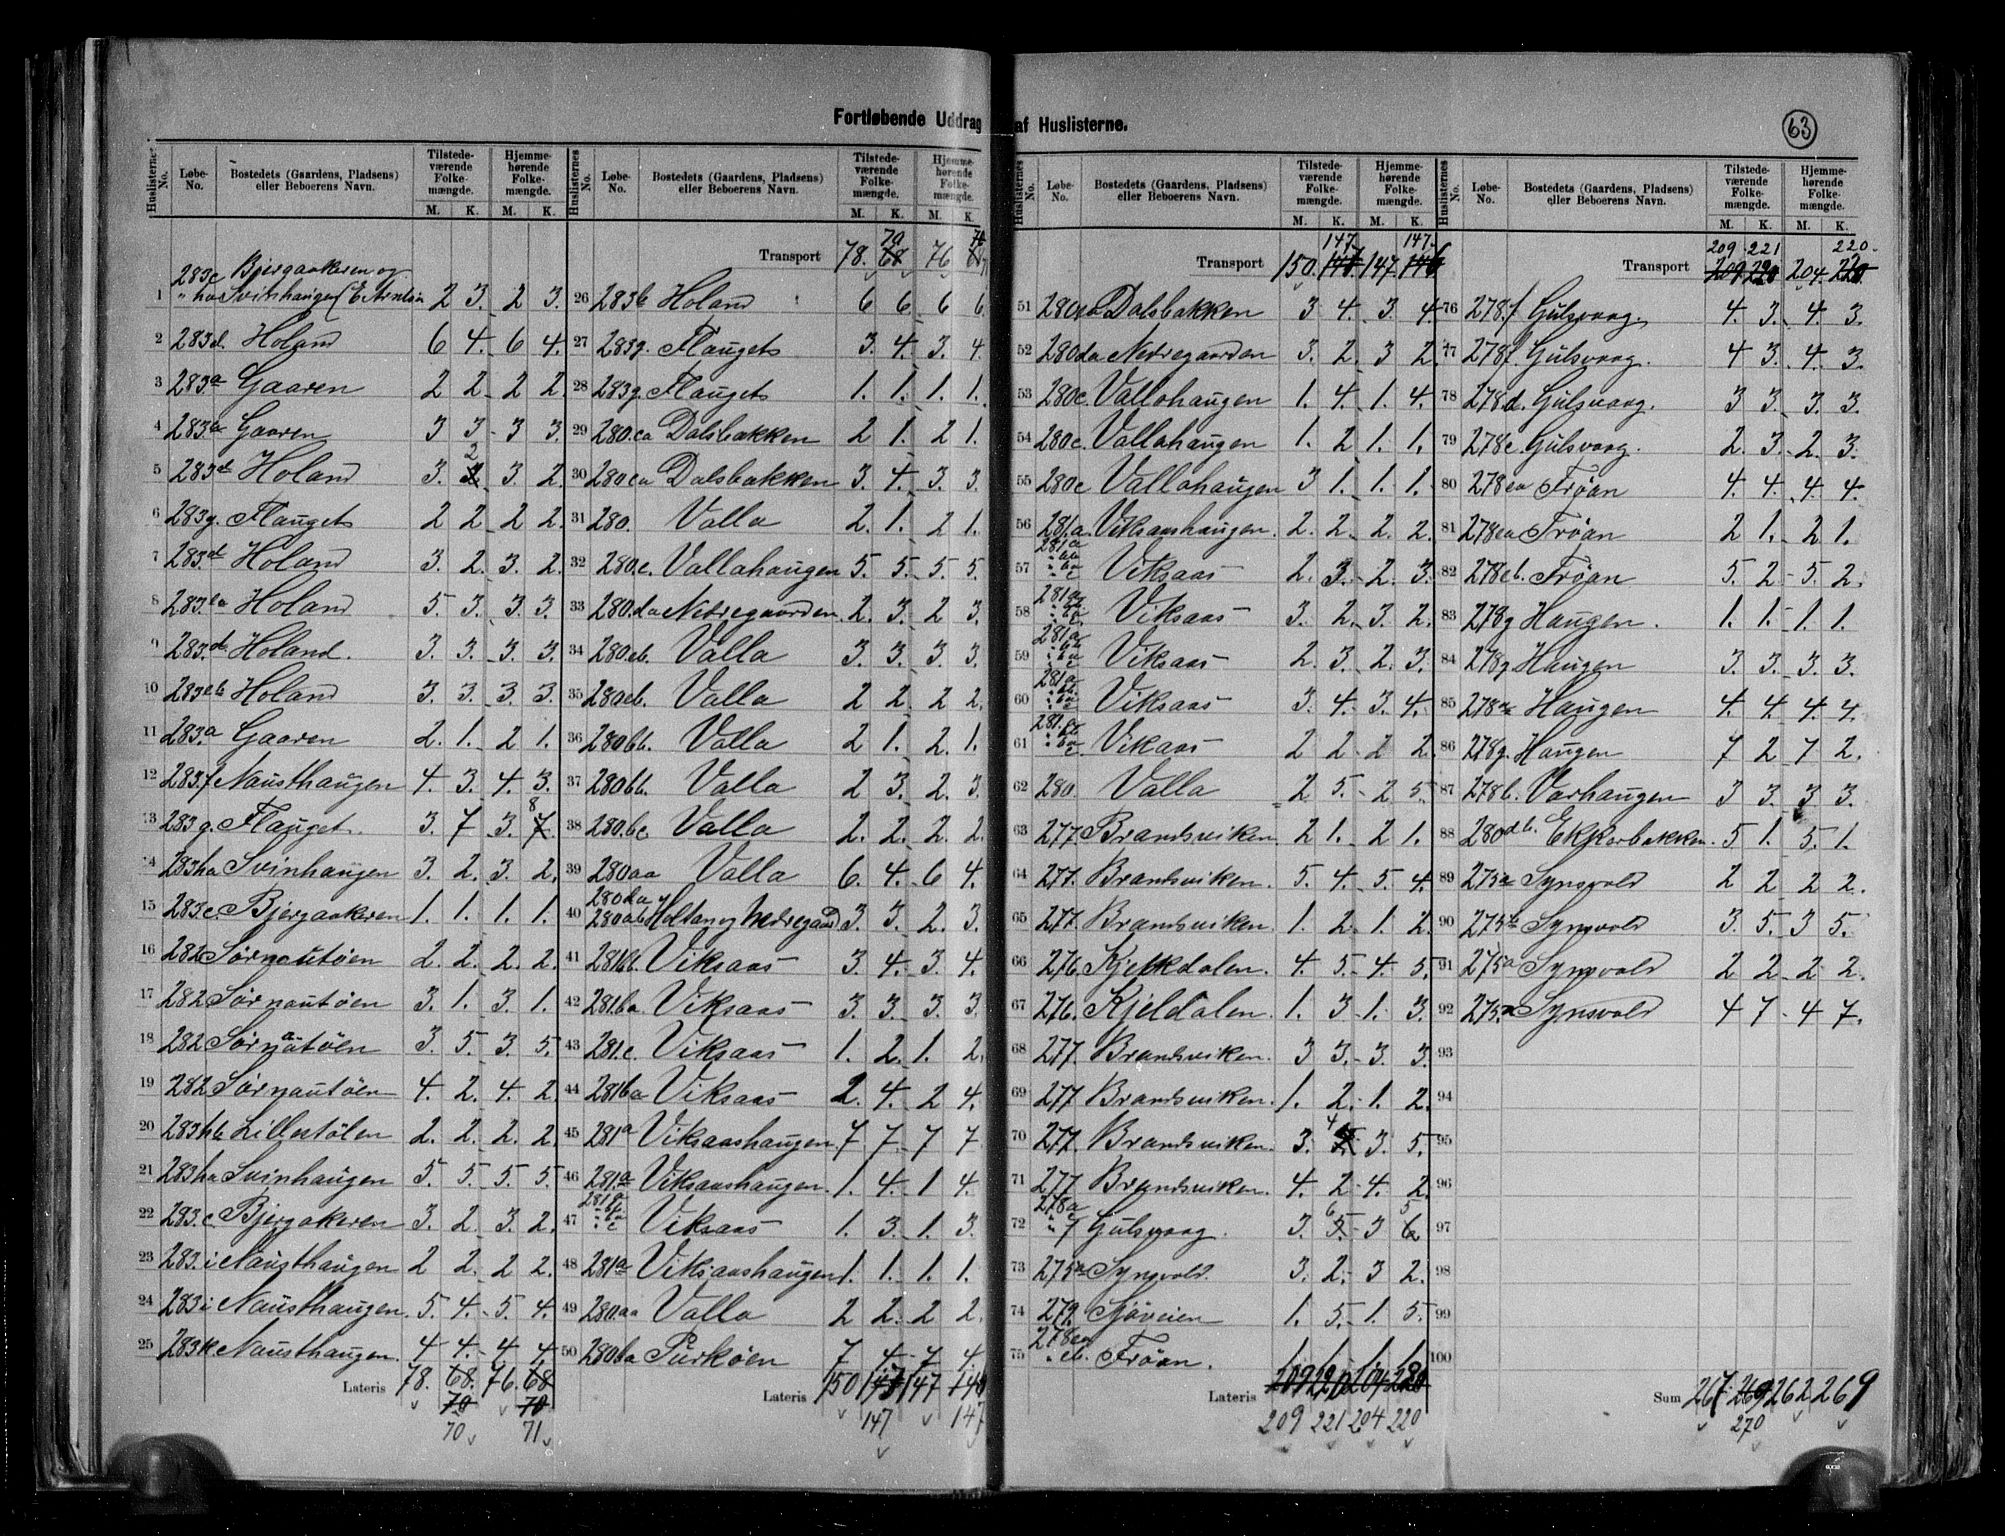 Fortløbende Uddrag af Huslisterne.
63
Huslisternes No. Løbe-No. Bostedets (Gaardens, Pladsens) eller Beboerens Navn. Tilstedeværende Folkemængde. M. K. Hjemmehørende Folkemængde. M. K.
283c Bjergaakeren og
1 " ha Svinhaugen 2 3. 2 3.
2 283d. Holand 6 4. 6 4.
3 283a Gaaren 2 2 2 2.
4 283a Gaaren 3 3 3 3.
5 283d Holand 3. 2 3. 2.
6 283g. Flauget 2 2 2 2.
7 283d Holand 3. 2. 3. 2.
8 283.ba Holand 5. 3. 3. 3.
9 283.d Holand. 3. 3. 3. 3.
10 283eb Holand 3. 3. 3. 3.
11 283.a Gaaren 2. 1. 2 1.
12 283.f Nausthaugen 4. 3. 4. 3.
13 283g. Flauget. 3. 7 3. 7. 8
14 283ha Svinhaugen 3. 2. 3. 2.
15 283.c. Bjergaakeren 1. 1. 1. 1.
16 282 Sørnautøen 2. 2. 2. 2.
17 282 Sørnautøen 3. 1. 3. 1.
18 282 Sørnautøen 3. 5. 3. 5.
19 282 Sørnautøen 4. 2. 4. 2.
20 283hb Lillestølen 2. 2. 2. 2.
21 283ha Svinhaugen 5. 5. 5. 5.
22 283.c Bjergakeren 3. 2. 3. 2.
23 283.i Nausthaugen 2 2. 2 2.
24 283i Nausthaugen. 5. 4. 5 4.
25 283k Nausthaugen. 4 4. 4 4.
Lateris 78. 68. 76. 68
70 70
70 71
Huslisternes No. Løbe-No. Bostedets (Gaardens, Pladsens) eller Beboerens Navn. Tilstedeværende Folkemængde. M. K. Hjemmehørende Folkemængde. M. K.
70
Transport 78. 68 76
26 283b Holand 6 6 6 6.
27 283g. Flauget 3. 4. 3. 4.
28 283g. Flauget 1. 1. 1. 1.
29 280.ca Dalsbakken 2 1. 2 1.
30 280ca Dalsbakken 3. 4. 3. 3.
31 280. Valla 2. 1. 2 1.
32 280.c. Vallahaugen 5. 5. 5. 5.
33 280.da Nedregaarden 2. 3. 2 3.
34 280.eb. Valla 3. 3. 3. 3.
35 280eb. Valla 2 2. 2 2.
36 280bb. Valla 2 1. 2. 1.
37 280bb. Valla 2 3. 2. 3.
38 280.bc Valla 2. 2. 2. 2.
39 280aa Valla 6. 4. 6 4.
280da
40 280ab Holtan og Nedregaard 3. 3. 2. 3.
41 281b. Viksaas 3. 4. 3. 4.
42 281.ba Viksaas 3. 3. 3. 3
43 281.c. Viksaas 1. 2. 1. 2.
44 281ba Viksaas 2. 4. 2 4.
45 281a Viksaashaugen 7 7. 7 7
46 281.a Viksaashaugen. 1. 4. 1 4.
47 Viksaas 1. 3. 1. 3.
48 281a Viksaashaugen 1. 1. 1. 1.
49 280aa Valla 2 2. 2 2.
50 280ba Purkøen 7 4. 7 4.
Lateris 150 147 147
147 147
Huslisternes No. Løbe-No. Bostedets (Gaardens, Pladsens) eller Beboerens Navn. Tilstedeværende Folkemængde. M. K. Hjemmehørende Folkemængde. M. K.
147. 147.
Transport 150. 147 147. 146
51 280ca Dalsbakken 3 4. 3. 4.
52 280da Nedregaarden 3. 2. 3 2.
53 280c. Vallahaugen 1. 4. 1. 4.
54 280c. Vallahaugen 1. 2 1. 1.
55 280c Vallahaugen 3 1. 1. 1.
56 281.a. Viksaashaugen. 2. 2. 2. 2.
57 281a Viksaas 2. 3. 2. 3.
58 281a Viksaas 3. 2. 3. 2.
59 281a Viksaas 2. 3. 2. 3.
60 281a Viksaas 3. 4. 3. 4.
61 Viksaas 2 2 2 2.
62 280. Valla 2 5. 2 5.
63 277. Brandsviken 2 1. 2 1.
64 277. Brandsviken. 5. 4. 5. 4.
65 277. Brandsviken. 1. 2 1. 2.
66 276. Kjeldalen. 4. 5. 4. 5.
67 276. Kjeldalen. 1. 3 1. 3.
68 277. Brandsviken. 3 3. 3. 3.
69 277. Brandsviken. 1. 2. 1. 2.
70 277. Brandsviken 3. 4 3. 5.
71 277 Brandsviken. 4. 2 4. 2.
278a 6 5
72 " f Gulsvaag. 3. 5. 3 6
73 275a Synsvold. 3. 2. 3 2.
74 279. Sjøveien 1. 5. 1. 5.
278ea
75 " eb. Trøan. 1 1. 1 1.
Lateris 209 220 204 220
209 221 204 220
Huslisternes No. Løbe-No. Bostedets (Gaardens, Pladsens) eller Beboerens Navn. Tilstedeværende Folkemængde. M. K. Hjemmehørende Folkemængde. M. K.
209 221 220.
Transport 209 220 204. 220
76 278.f Gulsvaag. 4. 3. 4. 3.
77 278f. Gulsvaag. 4 3. 4. 3.
78 278d. Gulsvaag. 3 3. 3. 3.
79 278c. Gulsvaag. 2. 3. 2. 3.
80 278ea Trøan 4. 4. 4. 4.
81 278ea Trøan 2 1. 2 1.
82 278eb. Trøan 5. 2. 5. 2.
83 278g Haugen. 1. 1. 1. 1.
84 278g Haugen 3. 3. 3. 3.
85 278 Haugen 4. 4. 4. 4.
86 278g. Haugen 7 2 7 2.
87 278b. Varhaugen 3 3. 3 3.
88 280db. Ekkerbakken. 5 1. 5. 1.
89 275a Synsvold 2 2 2 2.
90 275b Synsvold 3. 5. 3 5.
91 275a Synsvold 2 2 2 2.
92 275.a Synsvold 4 7 4 7.
93
94
95
96
97
98
99
100
Sum 267 269 262 269
270